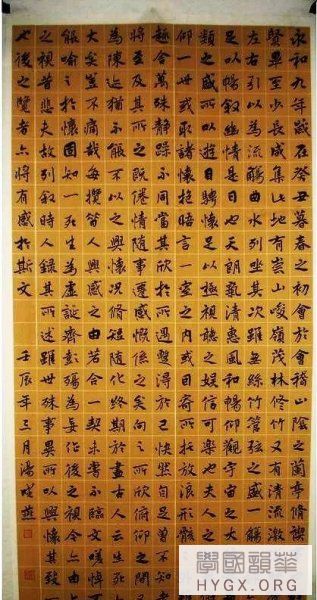 永和九年歲在癸丑暮春之初會于會稽山陰之蘭亭修禊事也群
賢畢至少長咸集此地有崇山峻嶺茂林修竹又有清流激湍映帶
左右引以為流觴曲水列坐其次雖無絲竹管弦之盛一觴一詠亦
足以暢敘幽情是日也天朗氣清惠風和暢仰觀宇宙之大俯察品
類之盛所以遊目騁懷足以極視聽之娛信可樂也夫人之相與俯
仰一世或取諸懷抱晤言一室之內或因寄所托放浪形骸之外雖
趣舍萬殊靜躁不同當其欣於所遇暫得於己快然自足曾不知老
將至及其所之既倦情隨事遷感慨係之矣向之所欣俯仰之間已
為陳迹猶不能不以之興懷況修短隨化終期於盡古人云死生亦
大矣豈不痛哉每攬昔人興感之由若合一契未嘗不臨文嗟悼不
能喻之於懷固知一死生為虛誕齊彭殤為妄作後之視今亦由今
之視昔悲夫故列敘時人錄其所述雖世殊事異所以興懷其致一
也後之覽者亦將有感於斯文 壬辰年三月 燕
學國頤華
HYGX.ORG